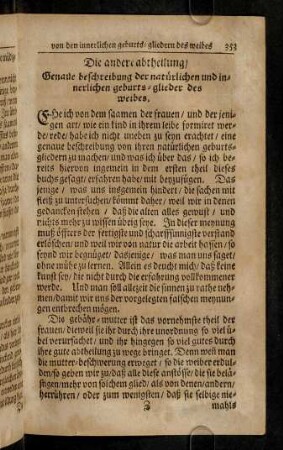 von den innerlichen geburts-gliedern des weibes 353
Die andere abtheilung/
Genaue beschreibung der natürlichen und in-
nerlichen geburts-glieder des
weibes.
EHe ich von dem saamen der frauen/ und der jeni-
gen art/ wie ein kind in ihrem leibe formiret wer-
de/ rede/ habe ich nicht uneben zu seyn erachtet/ eine
genaue beschreibung von ihren natürlichen geburts-
gliedern zu machen/ und was ich über das/ so ich be-
reits hiervon ingemein in dem ersten theil dieses
buchs gesagt/ erfahren habe/ mit beyzufügen. Das
jenige/ was uns insgemein hindert/ die sachen mit
fleiß zu untersuchen/ kömmt daher/ weil wir in denen
gedancken stehen/ daß die alten alles gewust/ und
nichts mehr zu wissen übrig sey. In dieser meynung
muß öffters der fertigste und scharffsinnigste verstand
erlöschen/ und weil wir von natur die arbeit hassen/ so
seynd wir begnüget/ dasjenige/ was man uns saget/
ohne mühe zu lernen. Allein es deucht mich/ daß keine
kunst sey/ die nicht durch die erfahrung vollkommener
werde. Und man soll allezeit die sinnen zu rathe neh-
men/ damit wir uns der vorgelegten falschen meynun-
gen entbrechen mögen.
Die gebähr-mutter ist das vornehmste theil der
frauen/ dieweil sie ihr durch ihre unordnung so viel ü-
bel verursachet/ und ihr hingegen so viel gutes durch
ihre gute abtheilung zu wege bringet. Denn weil man
die mutter-beschwerung erweget/ so die weiber erdul-
den/ so geben wir zu/ daß alle diese anstösse/ die sie belä-
stigen/ mehr von solchem glied/ als von denen/ andern/
herrühren/ oder zum wenigsten/ daß sie selbige nie-
Z mahls